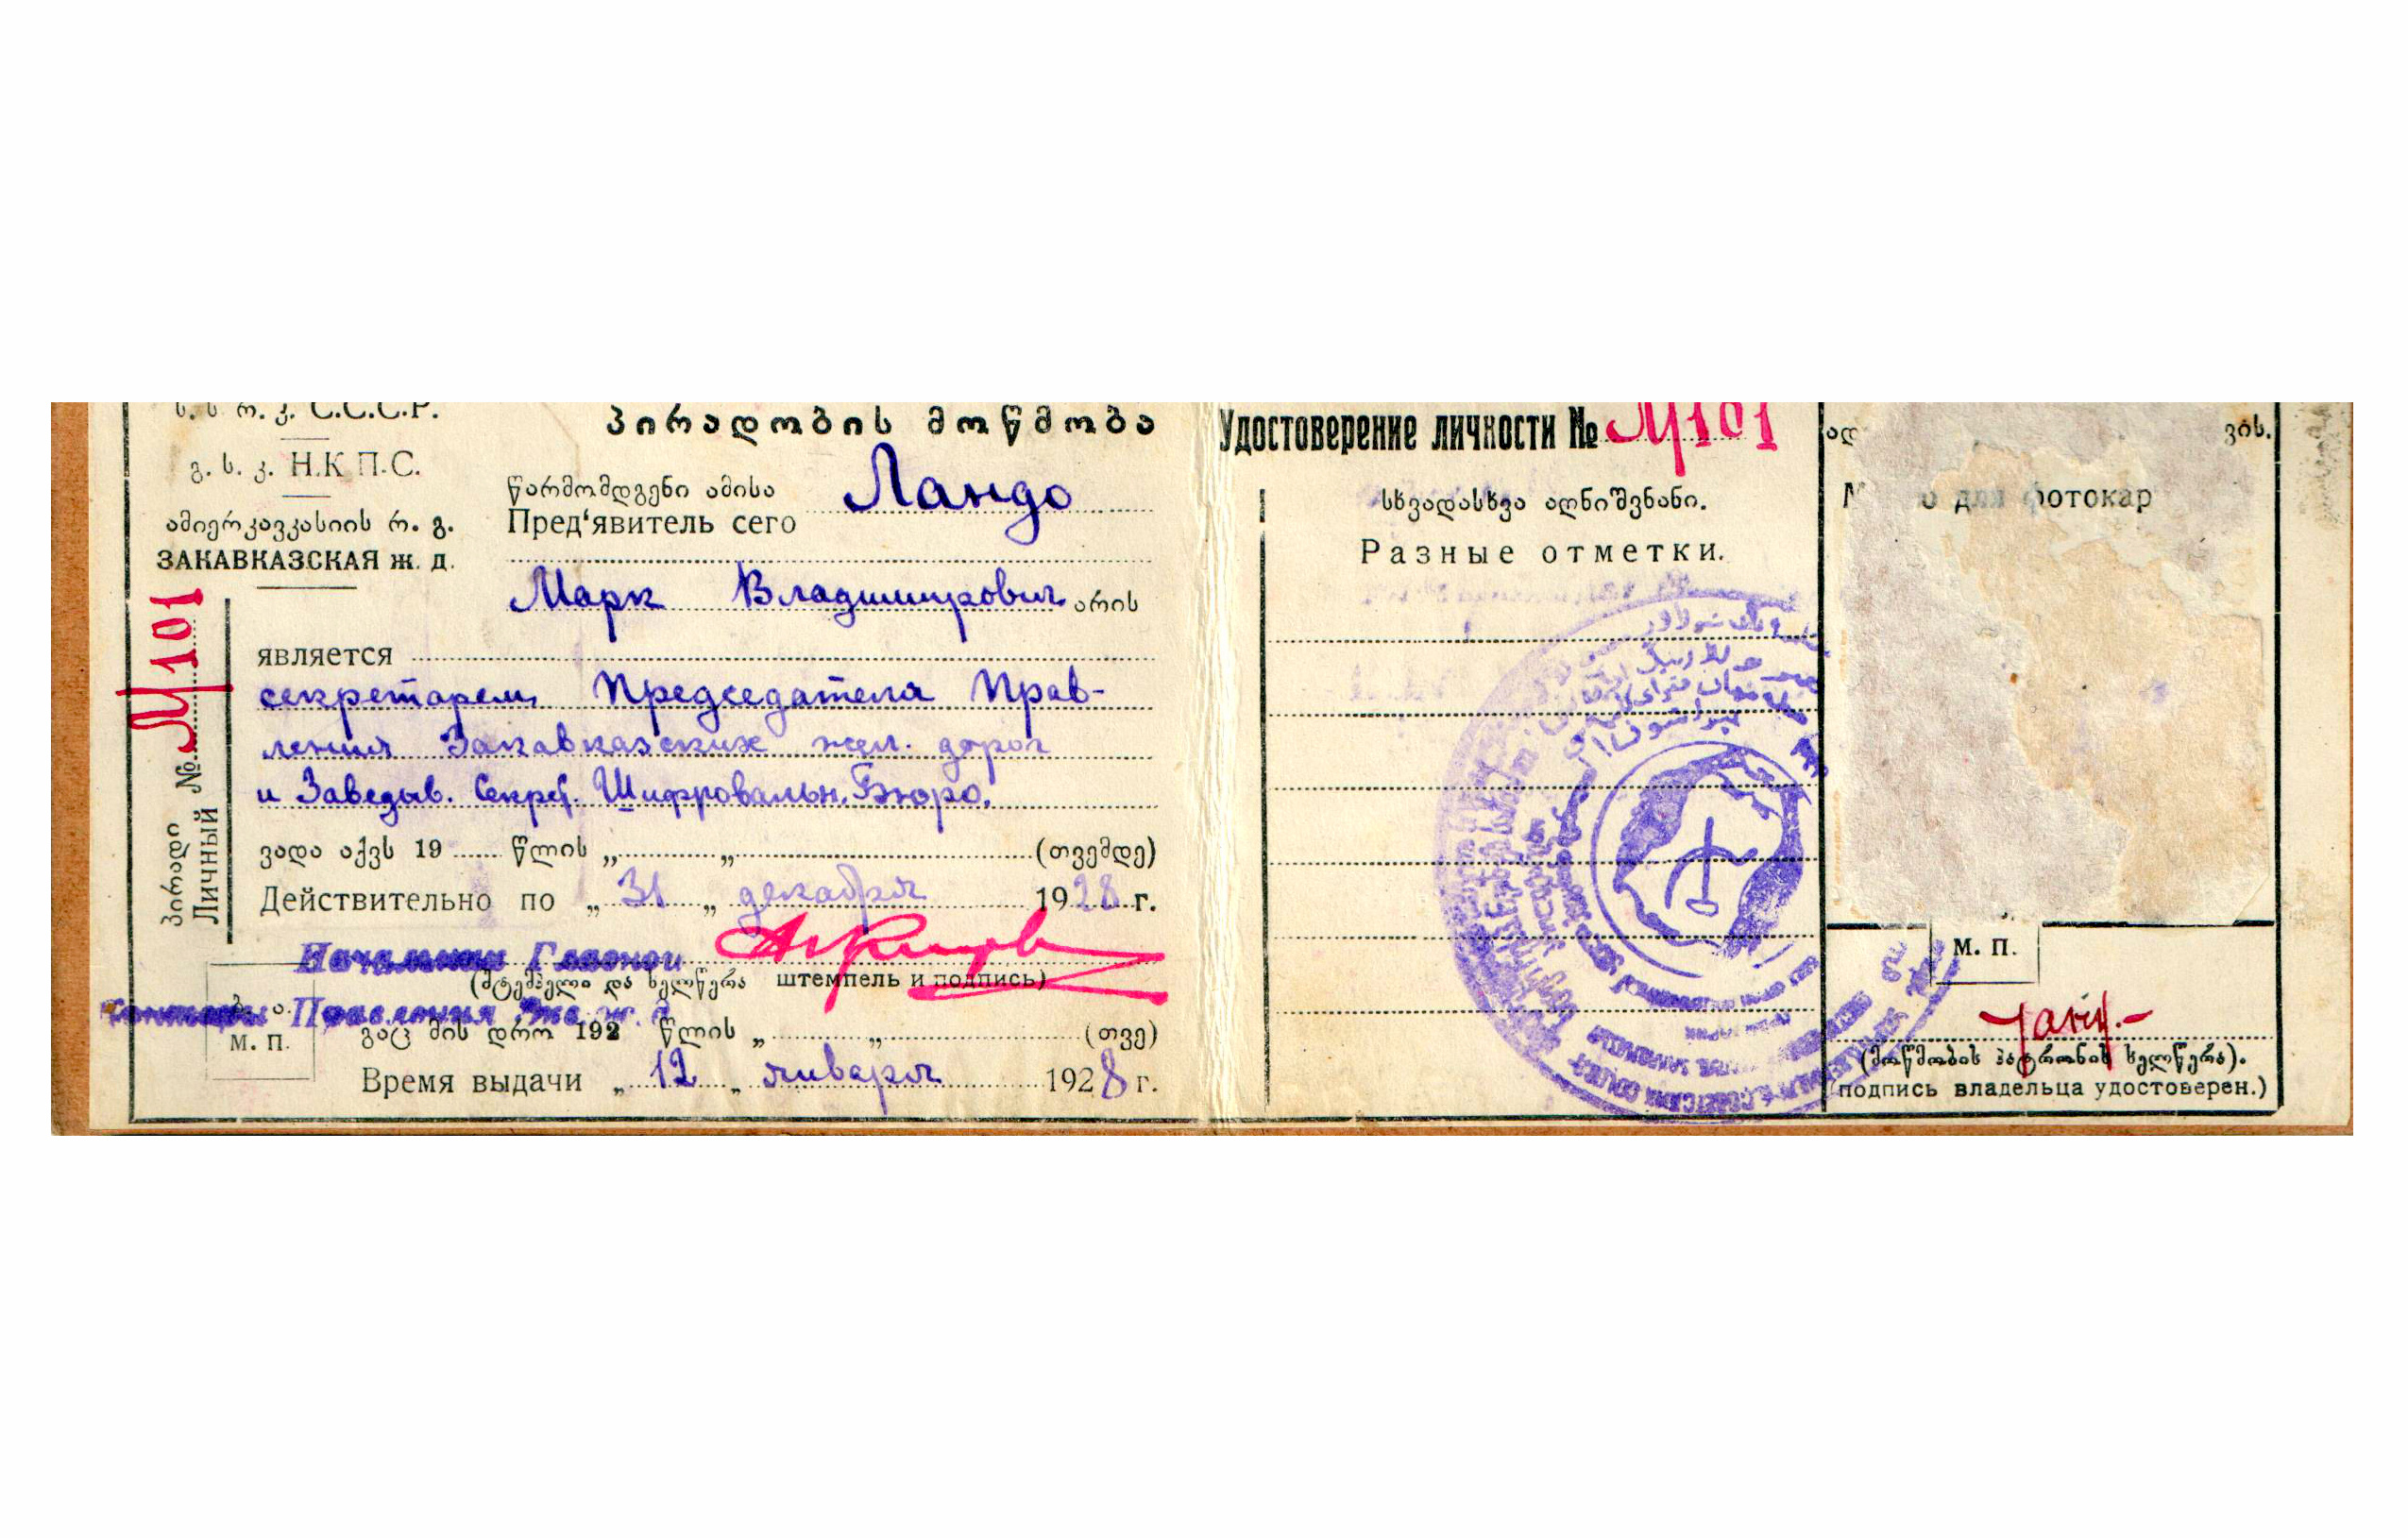 ს. ს რ. კ. С.С.С.Р.
გ. ს. კ. Н.К П.С.
ამიერკავკასიის რ. გ.
ЗАКАВКАЗСКАЯ ж. д.
პირადი
Личный №. М 101
პირადობის მოწმობა
წარმომდგენი ამისა
Пред‘явитель сего Ландо
Марк Владимирович არის
является
секретарем Председателя Прав-
ления Закавказских жел. дорог
и Заведыв. Секрет. Шифровальн. Бюро.
ვადა აქვს 19 წლის „ „ (თვემდე)
Действительно по „ 31 „ декабря 1928 г.
Начальник Главной
(შტემპელი და ხელწერა штемпель и подпись)
Конторы Правления Зкв. ж. д.
ბ. ა.
м. п.
გაც მის დრო 192 წლის „ „ (თვე)
Время выдачи „ 12 „ января 1928 г.
Удостоверение личности № М101
სხვადასხვა აღნიშვნანი.
Разные отметки.
ად ვის.
М о для фотокар
м. п.
(მოწმობის პატრონის ხელწერა).
(подпись владельца удостоверен.)